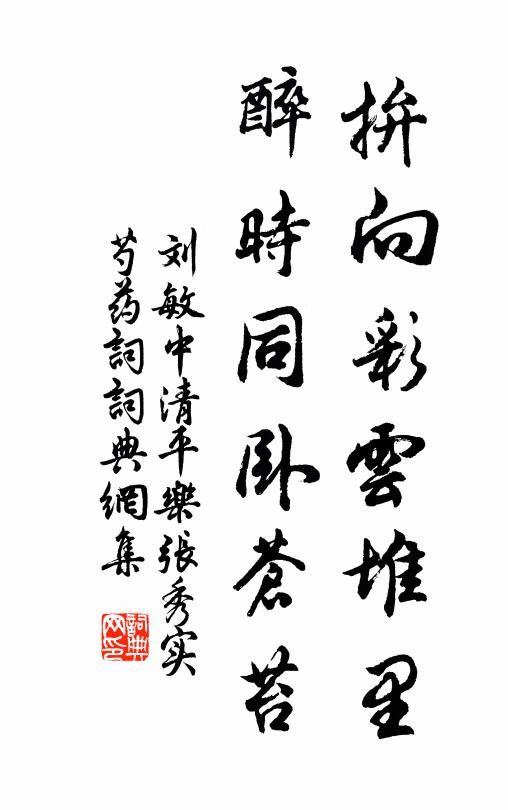 拚向彩雲堆里
醉時同卧蒼苔
刘敏中清平樂張秀实
芍药詞詞典網集
詞典网印